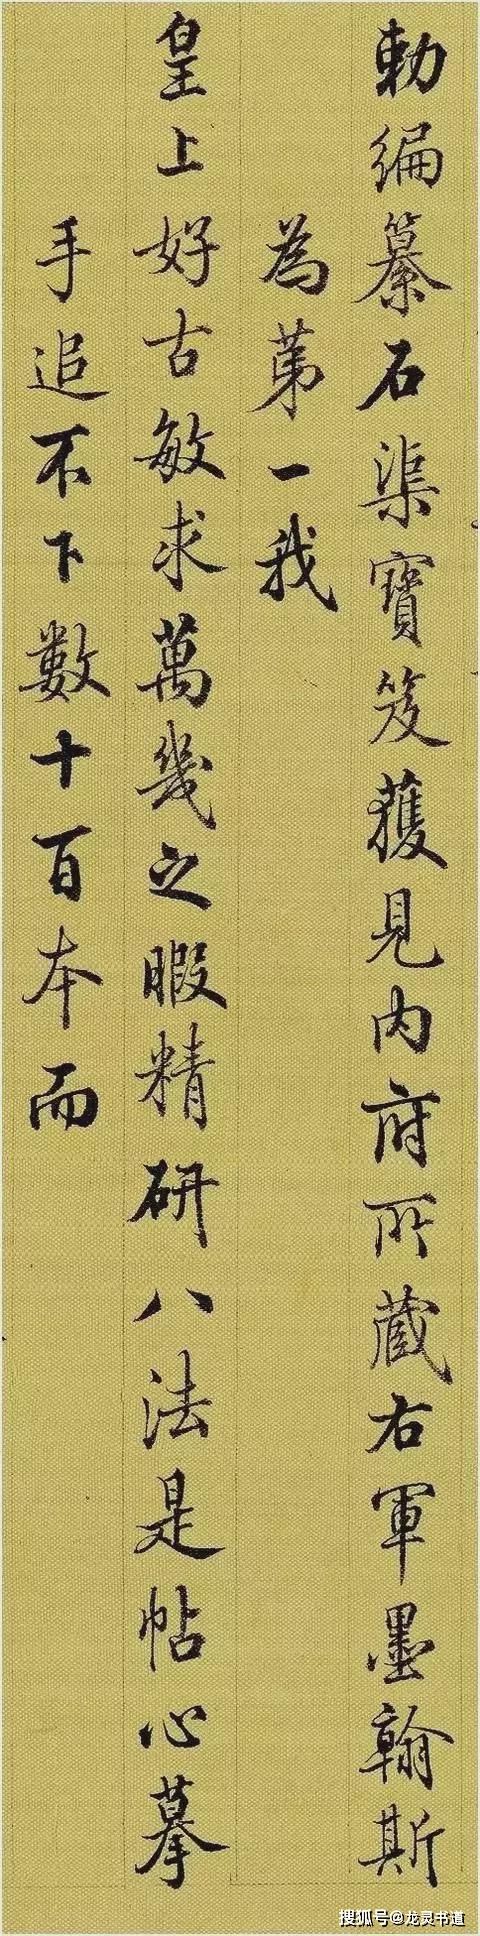 勅編纂石渠寶笈獲見內府所蔵右軍墨翰斯
為苐一我
皇上好古敏求萬幾之暇精研八法是帖心摹
手追不下數十百本而
搜狐号@龙灵书道